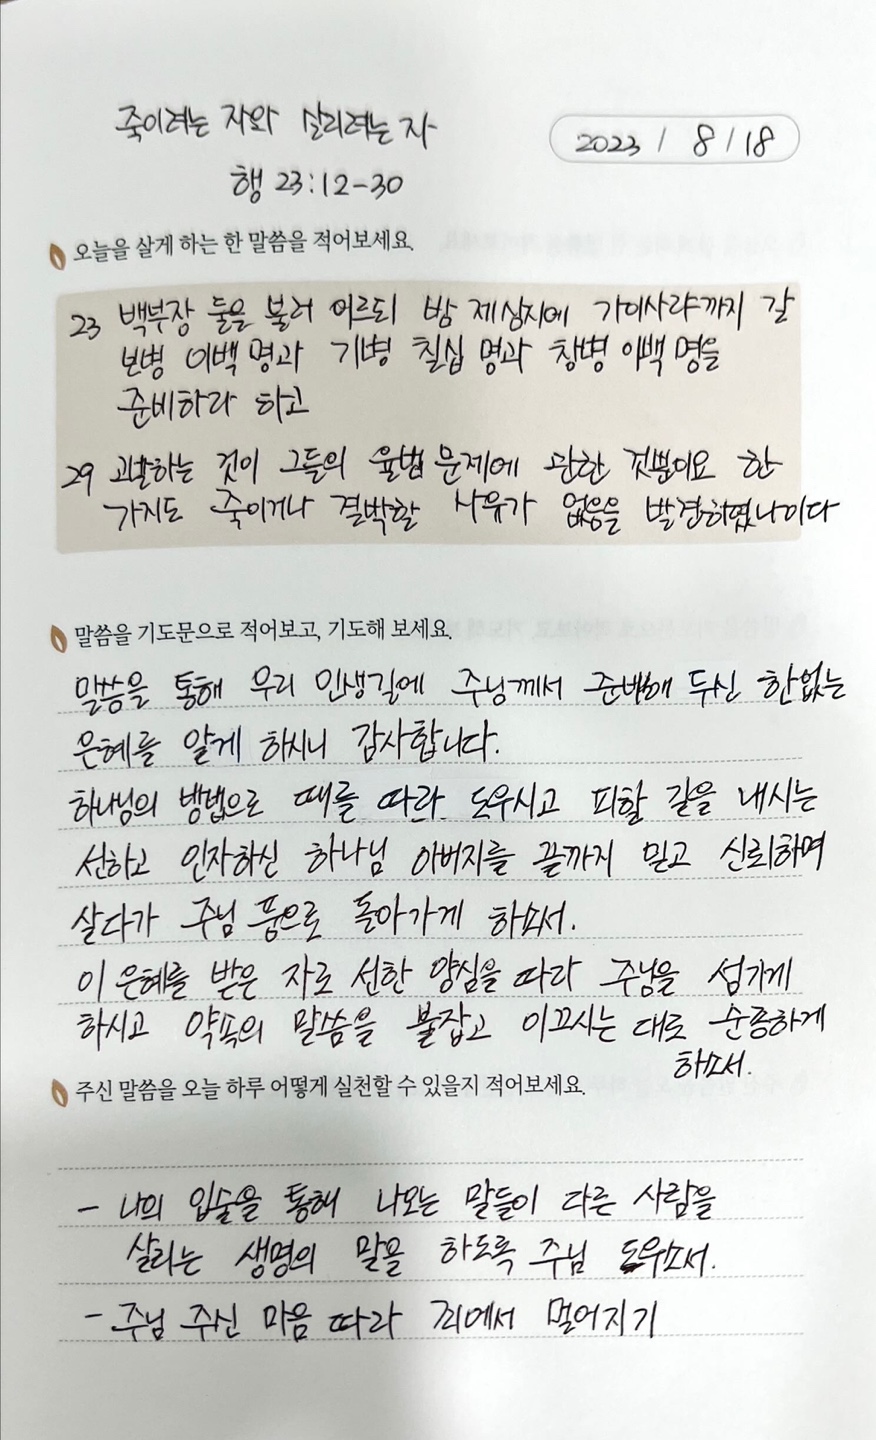 죽이려는 자와 살리려는 자
2023 / 8 / 18
행 23:12-30
오늘을 살게 하는 한 말씀을 적어보세요.
23 백부장 둘을 불러 이르되 밤 제삼시에 가이사랴까지 갈
보병 이백 명과 기병 칠십 명과 창병 이백 명을
준비하라 하고
29 고발하는 것이 그들의 율법 문제에 관한 것뿐이요 한
가지도 죽이거나 결박할 사유가 없음을 발견하였나이다
말씀을 기도문으로 적어보고, 기도해 보세요.
말씀을 통해 우리 인생길에 주님께서 준비해 두신 한없는
은혜를 알게 하시니 감사합니다.
하나님의 방법으로 때를 따라 도우시고 피할 길을 내시는
선하고 인자하신 하나님 아버지를 끝까지 믿고 신뢰하며
살다가 주님 품으로 돌아가게 하소서.
이 은혜를 받은 자로 선한 양심을 따라 주님을 섬기게
하시고 약속의 말씀을 붙잡고 이끄시는 대로 순종하게
하소서.
주신 말씀을 오늘 하루 어떻게 실천할 수 있을지 적어보세요.
- 나의 입술을 통해 나오는 말들이 다른 사람을
살리는 생명의 말을 하도록 주님 도우소서.
- 주님 주신 마음 따라 죄에서 멀어지기